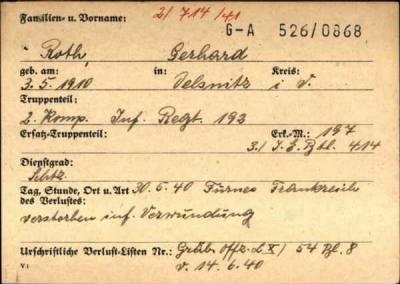 Familien- u. Vorname: 2/714/41
G-A 526/0868
Roth, Gerhard
geb. am: in: Kreis:
3.5.1910 Oelsnitz i V.
Truppenteil:
2. Komp. Inf. Regt. 193
Ersatz-Truppenteil: Erk.-M.: 197
3./ I.E.Btl. 414
Dienstgrad:
Schtz.
Tag, Stunde, Ort u. Art 30.5.40 Furnes Frankreich
des Verlustes:
verstorben inf. Verwundung
Urschriftliche Verlust-Listen Nr.: Gräb. Offz. d. X/ 54 Bl. 8
V1 v. 14.6.40